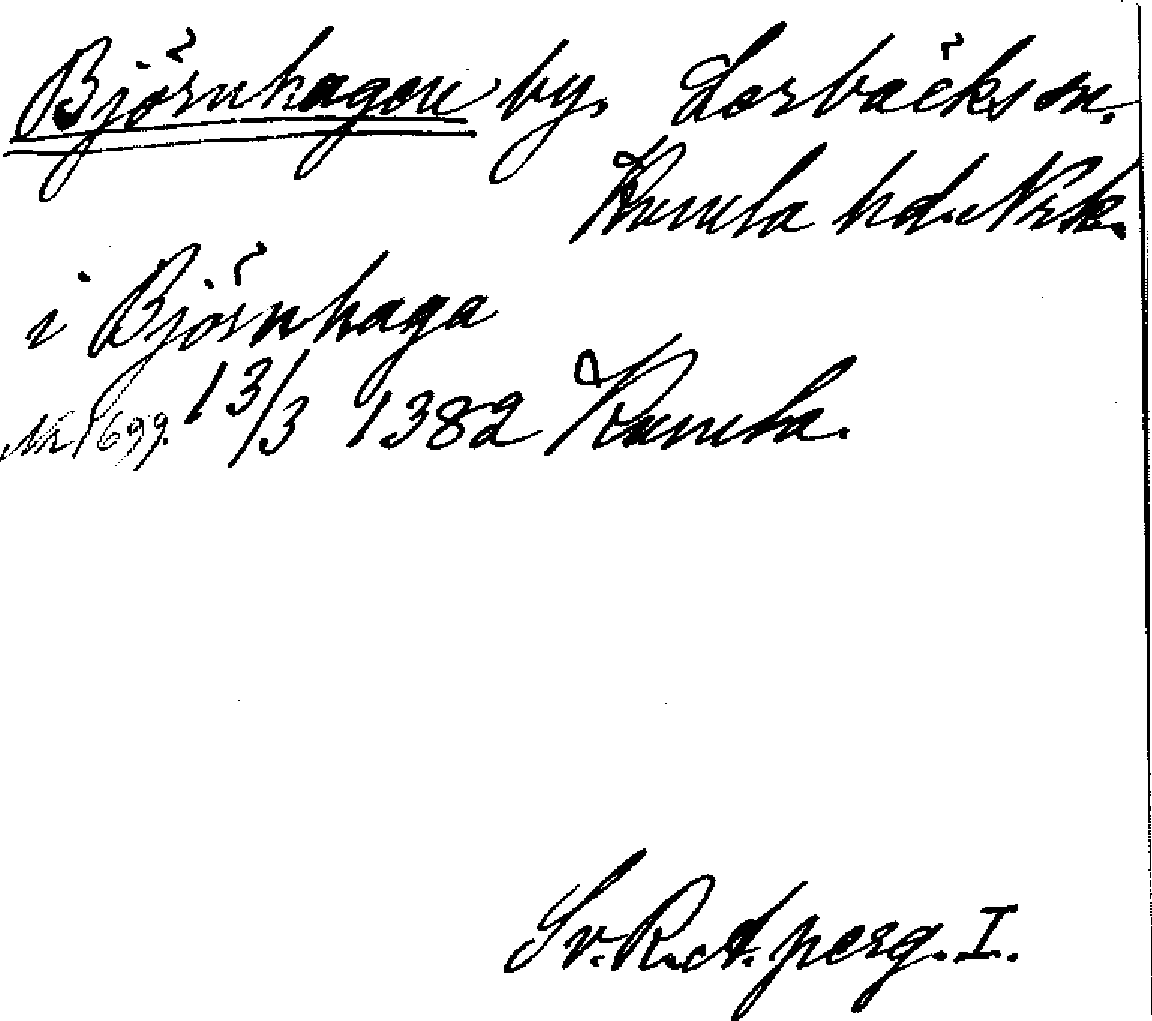 Björnhagen by. Lerbäcks sn.
Kumla hd. Nrk.
i Björnhaga
Nr 1699. 13/3 1382 Kumla.
Sv. R. A. perg. I.